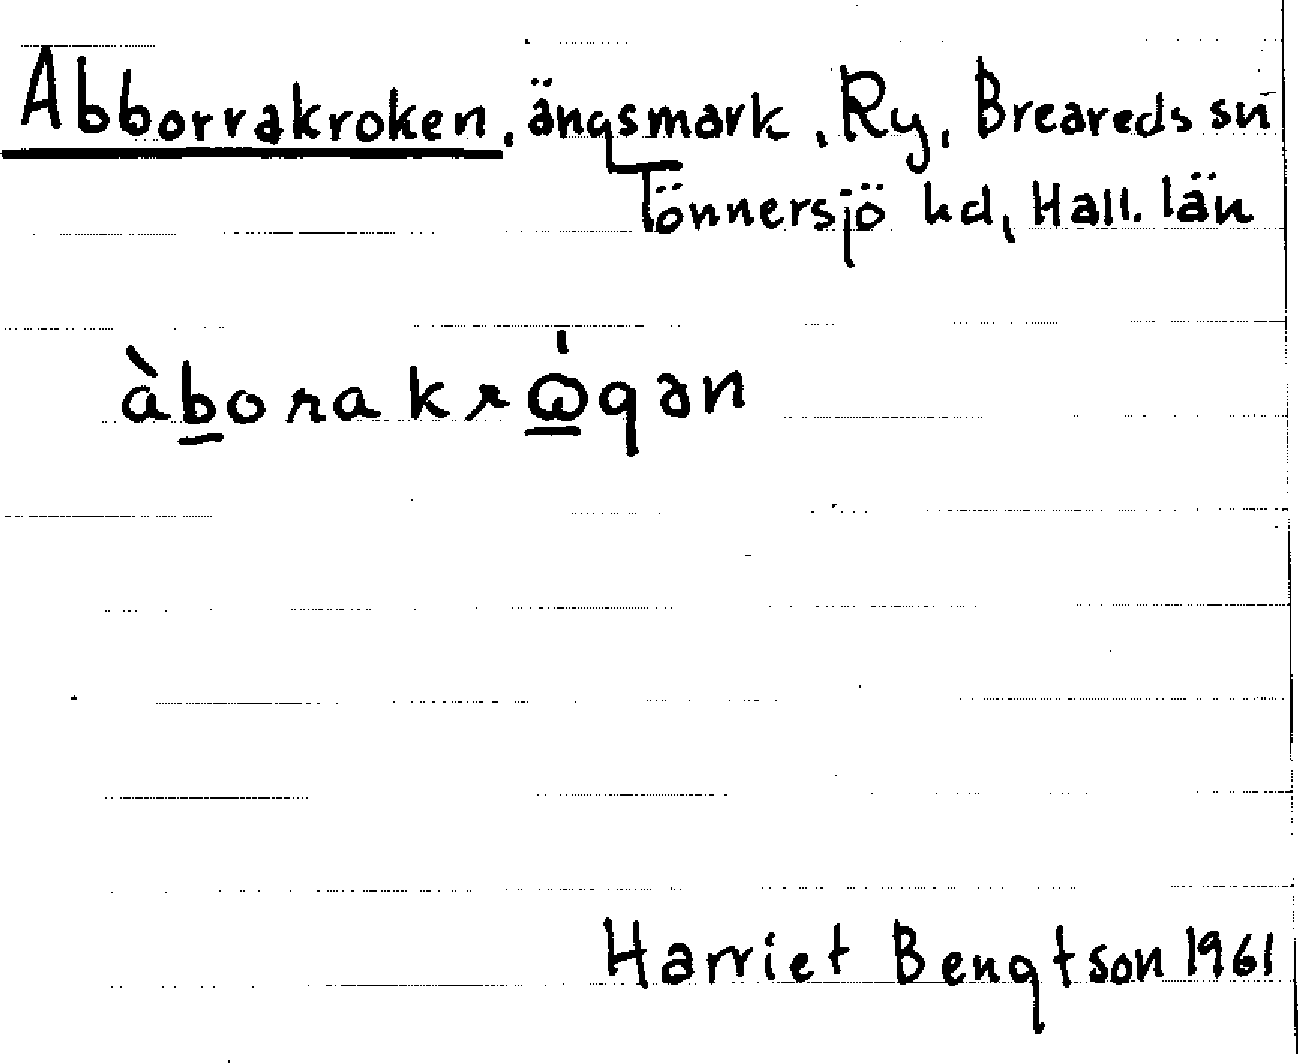 Abborrakroken, ängsmark, Ry, Breareds sn
Tönnersjö hd, Hall. län
àb̲orakrώ̲gən
Harriet Bengtson 1961